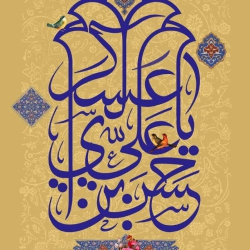 یا حسن بن علی عسکری